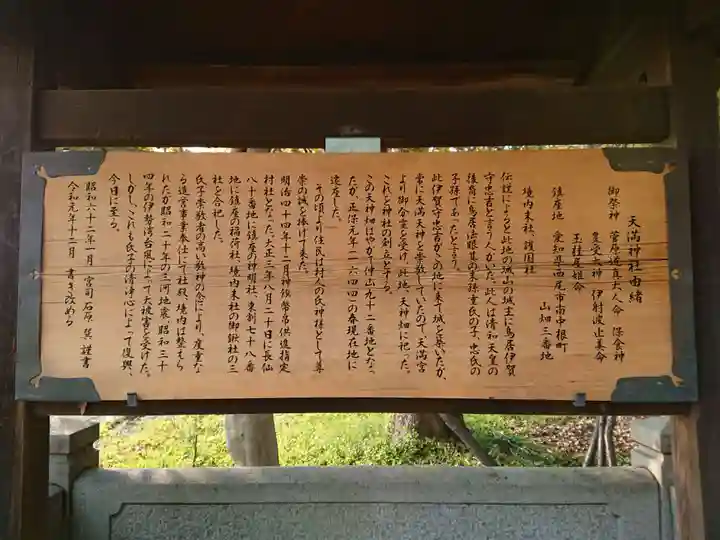 天満神社由緒
御祭神 菅原道真大人命 保食神
豊受大神 伊射波止美命
玉柱屋姫命
鎮座地 愛知県西尾市南中根町
山畑三番地
境内末社、護国社
伝説によると此地の城山の城主に鳥居伊賀
守忠吉と言う人がいた。此人は清和天皇の
後裔に鳥居法眼某の末孫重氏の子、忠氏の
子孫であったと言う。
此伊賀守忠吉がこの地に来て城を築いたが、
常に天満天神を崇敬していたので、天満宮
より御分霊を受け、此地、天神畑に祀った。
これを神社の創立とする。
この天神畑はやがて仲山九十二番地となっ
たが、正保元年二、一六四四の春現在地に
遠座した。
その頃より住民は村人の氏神様として尊
崇の誠を捧げて来た。
明治四十四年十二月神饌幣帛供進指定
村社となった。大正三年八月二十日に長仙
八十番地に鎮座の神明社、東割七十八番
地に鎮座の稲荷社、境内末社の御鍬社の三
社を合祀した。
氏子崇敬者の高い敬神の念により、度重な
る造営事業奉仕にて社殿、境内は整えら
れたが昭和二十年の三河地震、昭和三十
四年の伊勢湾台風によって大被害を受けた。
しかし、これも氏子の清浄心によって復興、
今日に至る。
昭和六十二年一月 宮司 石原 巽 謹書
令和元年十二月 書き改める